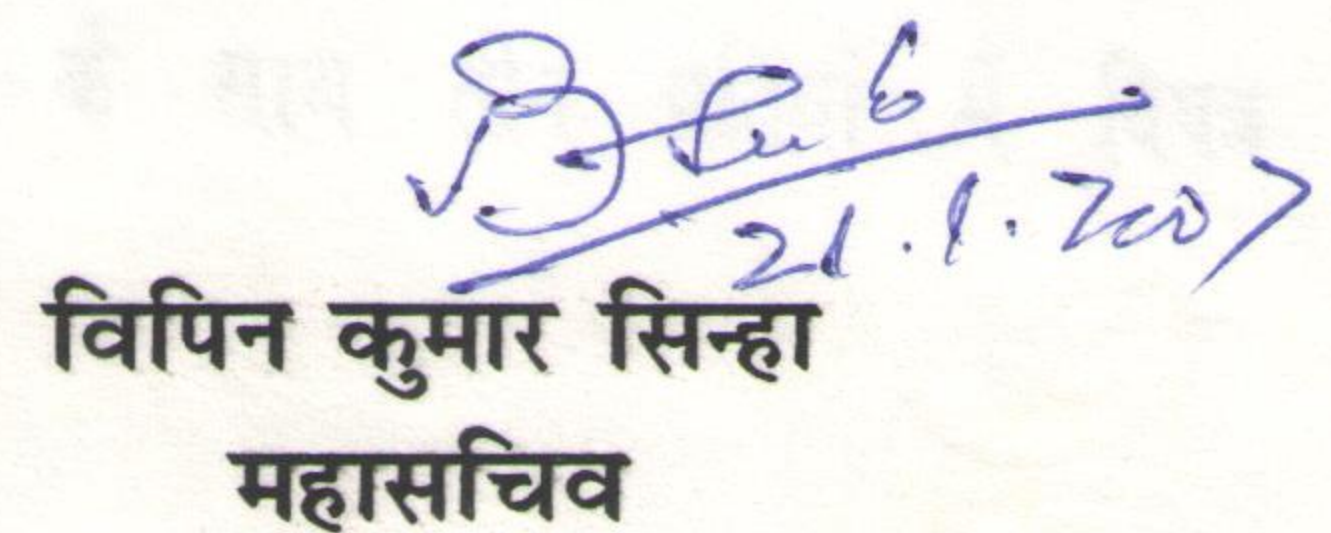 21.1.2007
विपिन कुमार सिन्हा
महासचिव